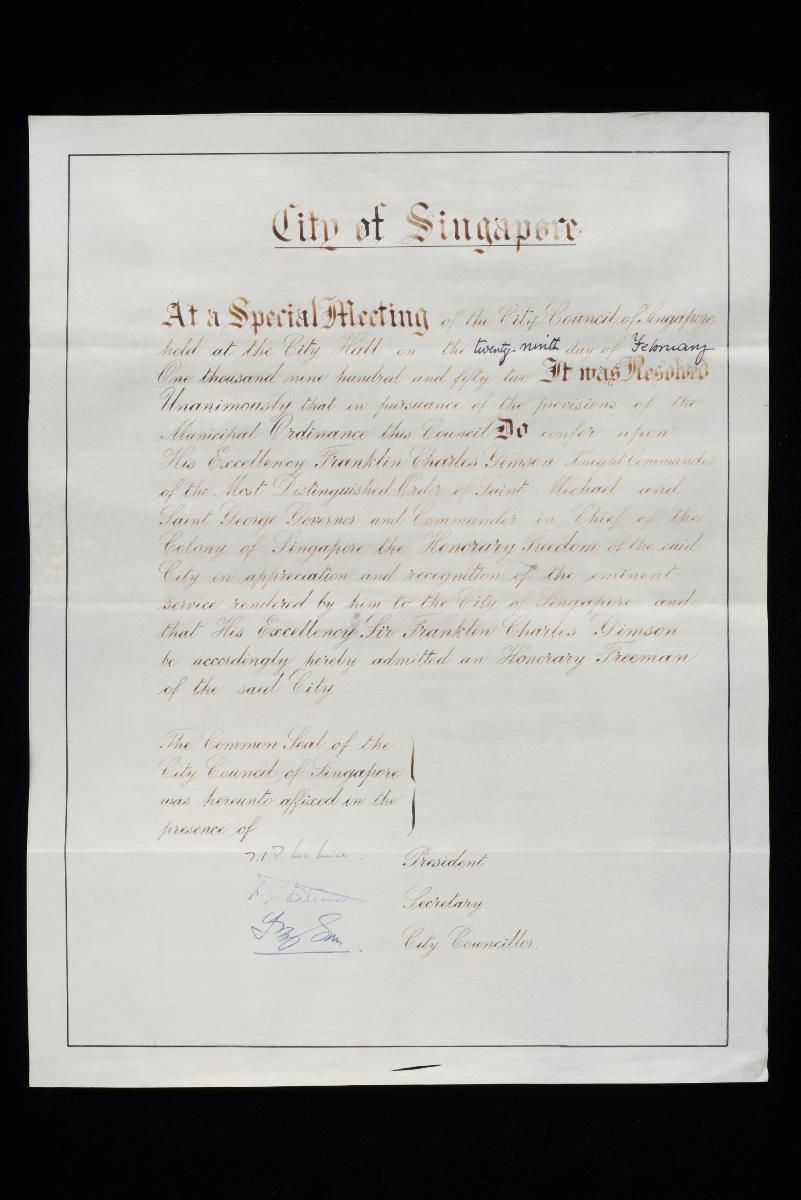 City of Singapore
At a Special Meeting of the City Council of Singapore
held at the City Hall on the twenty-ninth day of February
One thousand nine hundred and fifty two It was Resolved
Unanimously that in pursuance of the provisions of the
Municipal Ordinance this Council Do confer upon
His Excellency Franklin Charles Gimson Knight Commander
of the Most Distinguished Order of Saint Michael and
Saint George Governor and Commander-in-Chief of the
Colony of Singapore the Honorary Freedom of the said
City in appreciation and recognition of the eminent
service rendered by him to the City of Singapore and
that His Excellency Sir Franklin Charles Gimson
be accordingly hereby admitted an Honorary Freeman
of the said City
The Common Seal of the
City Council of Singapore
was hereunto affixed in the
presence of
President
Secretary.
City Councillor.